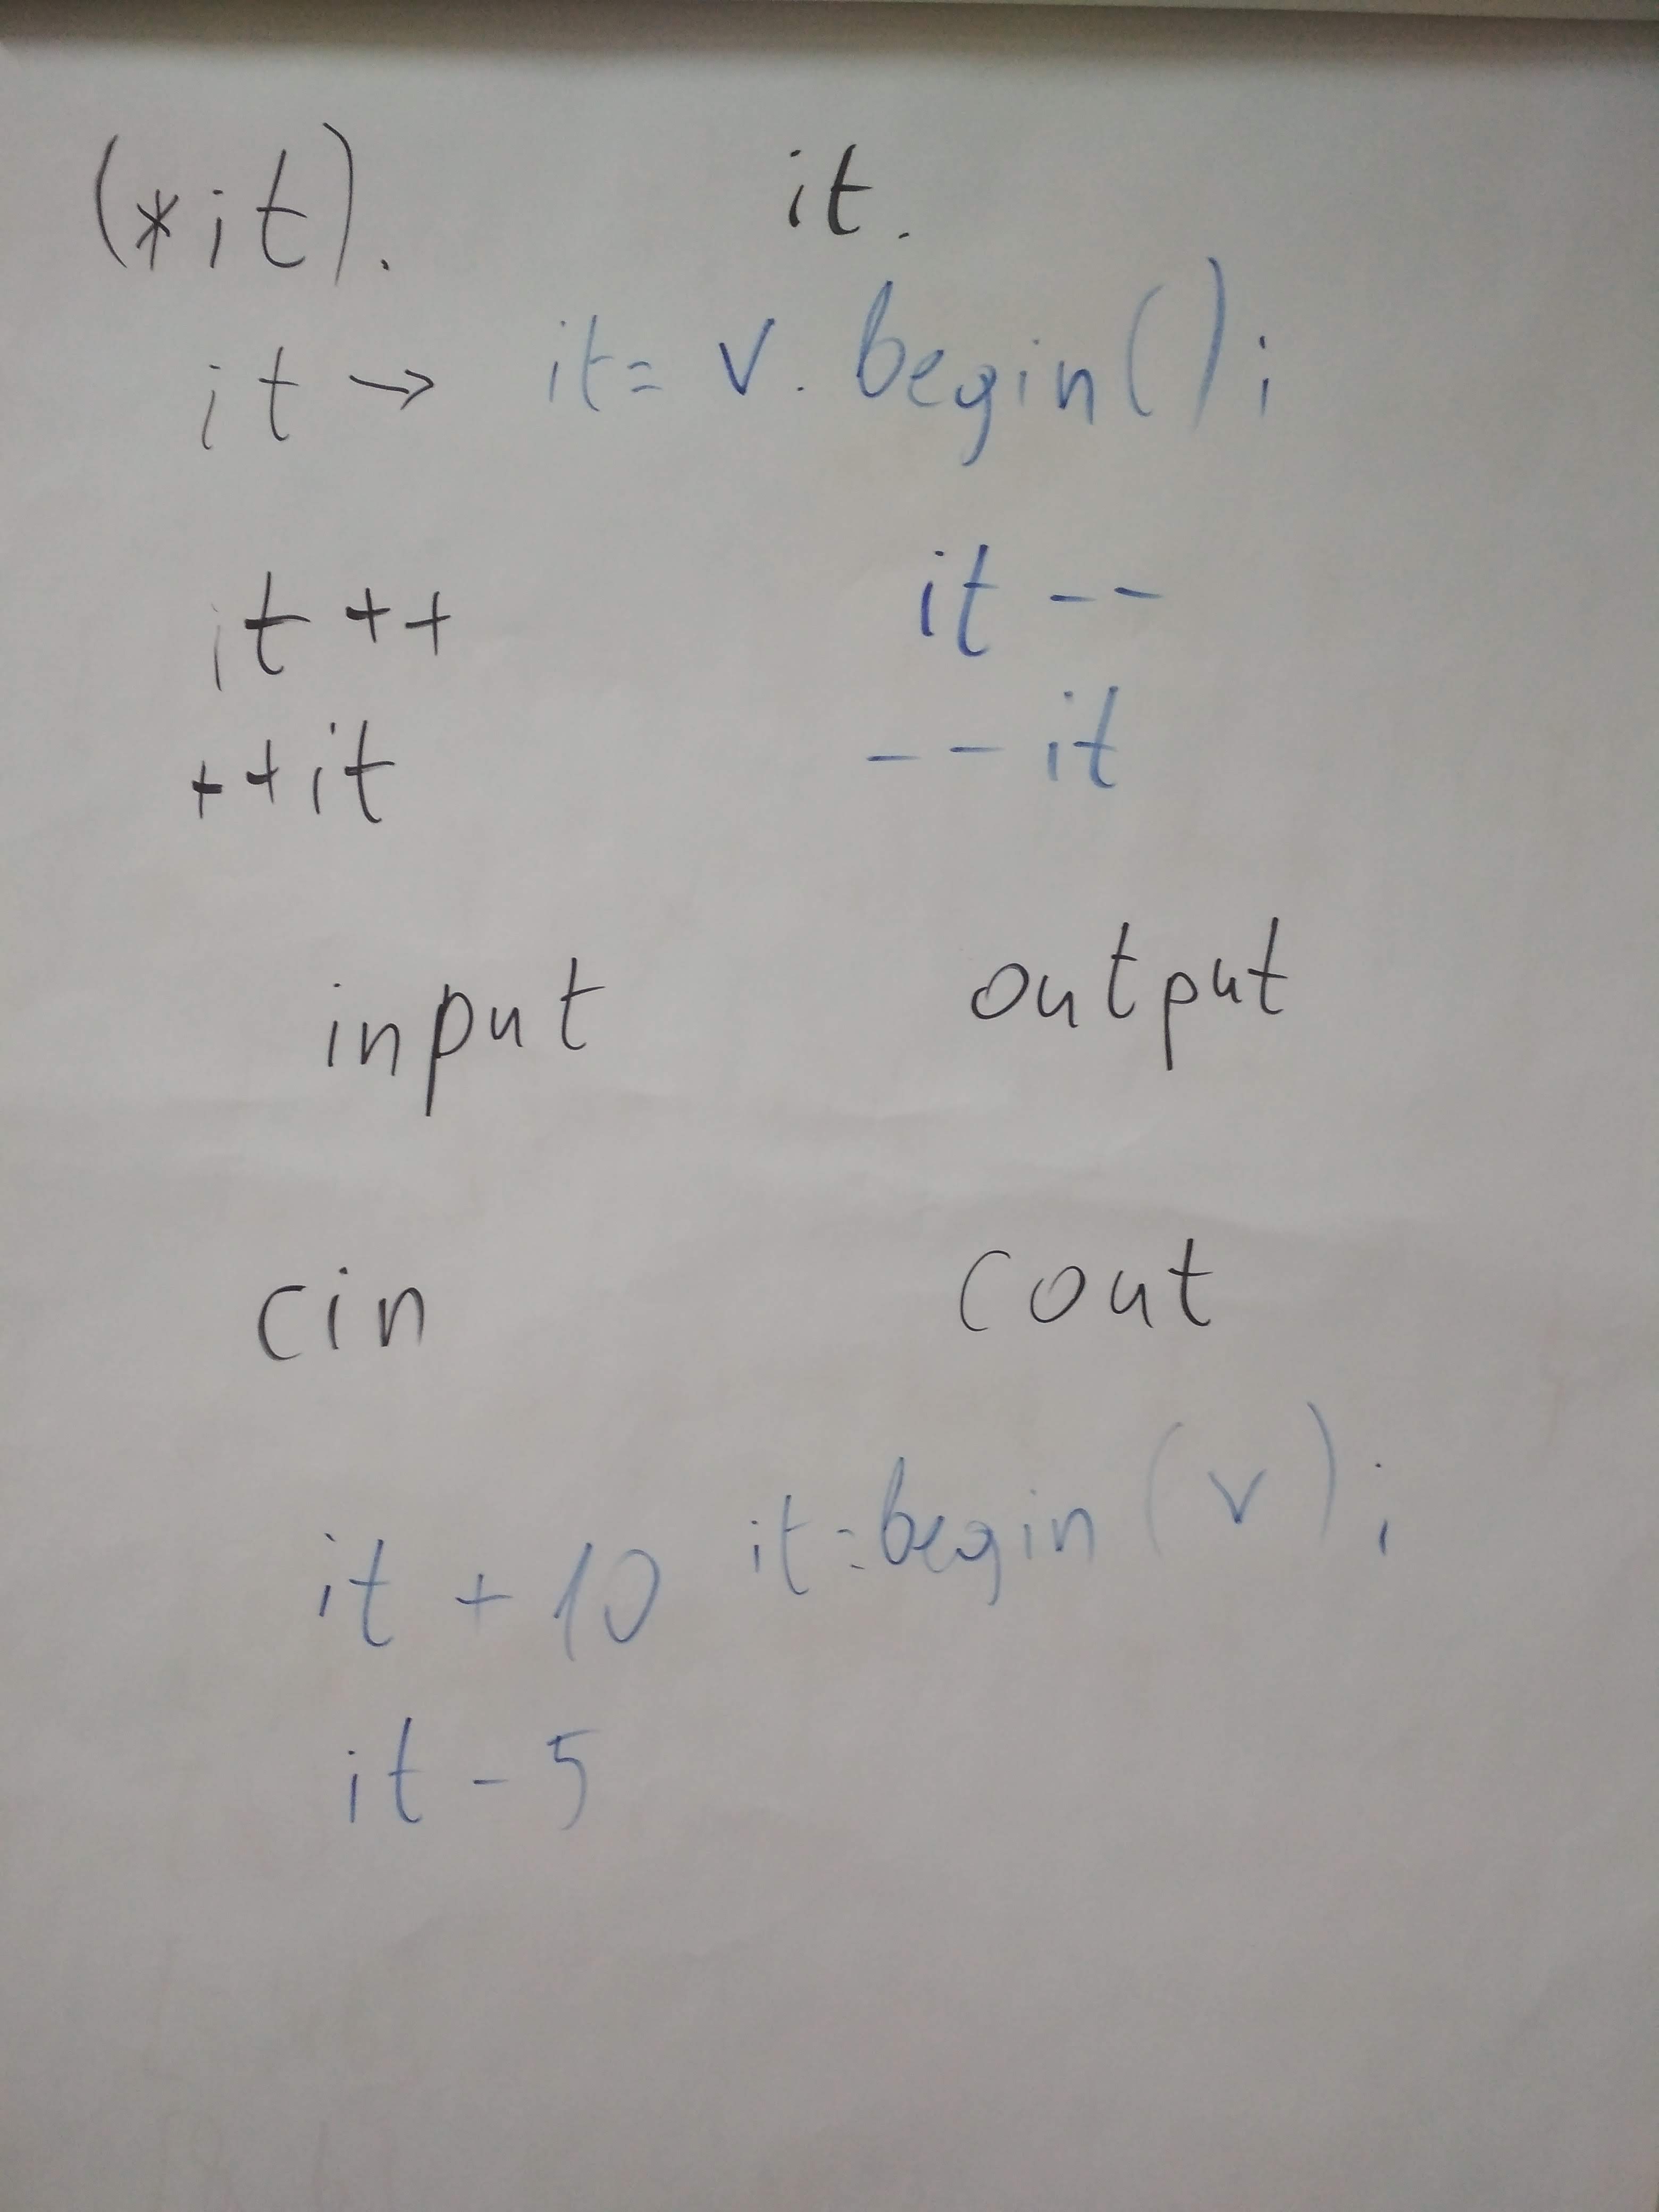 (*it). it.
it → it= v. begin();
it ++ it --
++it --it
input output
cin cout
it + 10 it=begin(v);
it - 5